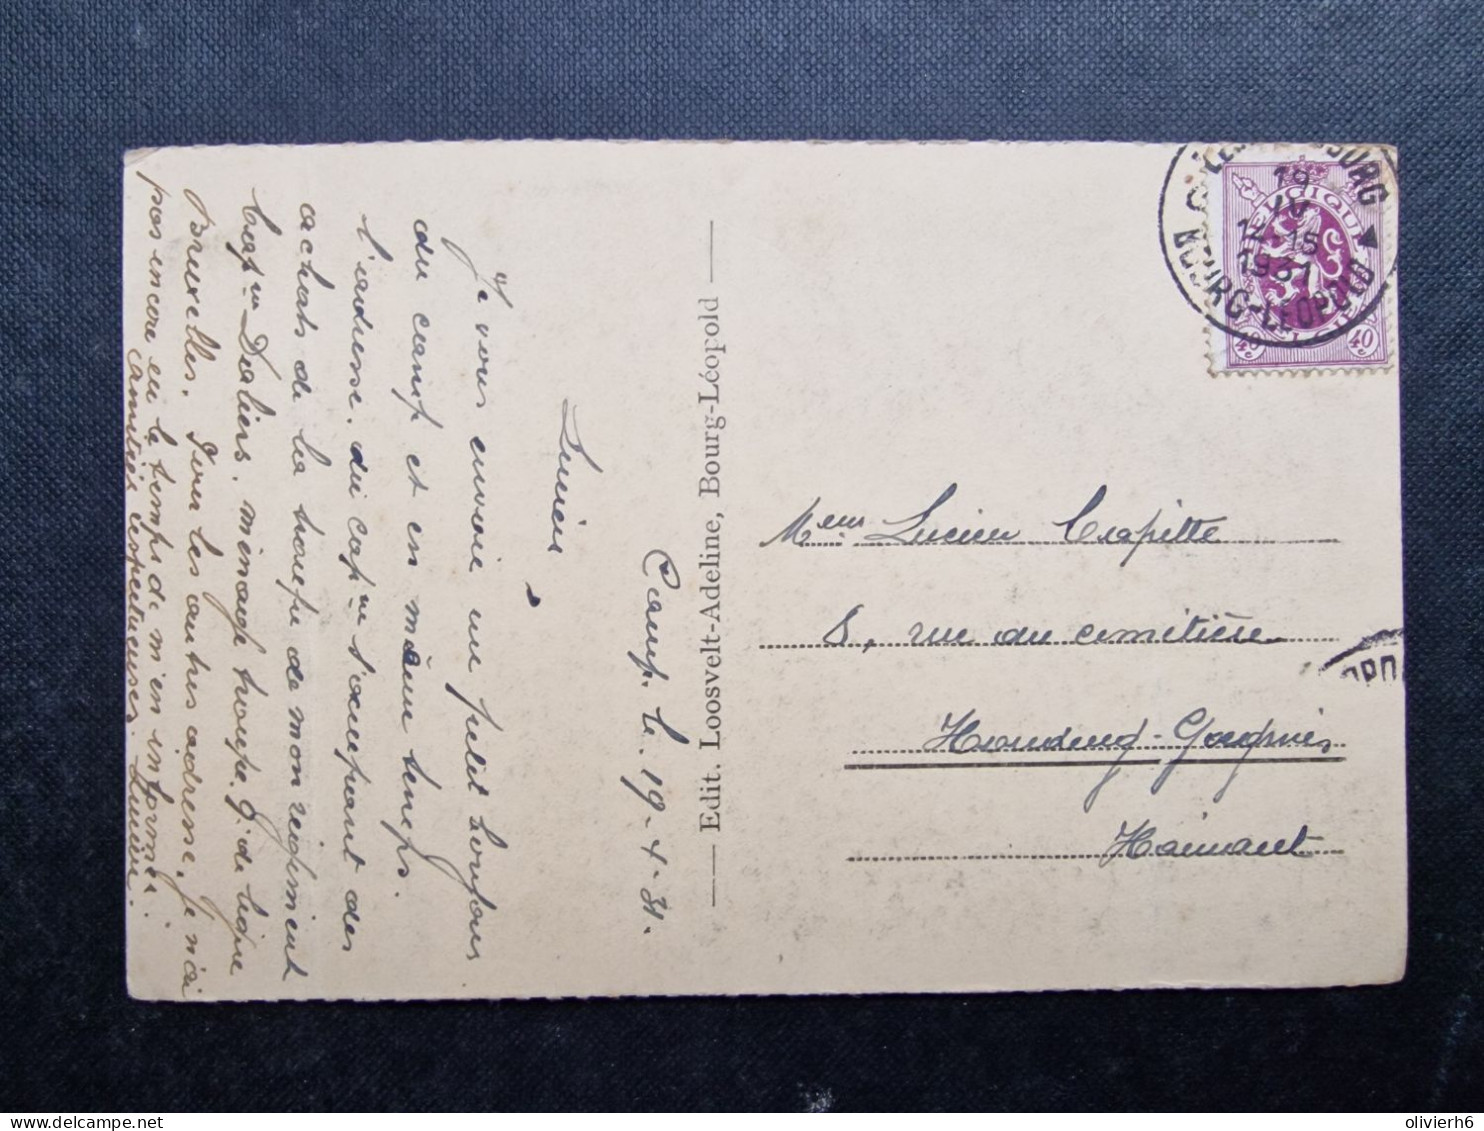 Camp. le. 19-4-31.
Lucien
Je vous envoie un petit bonjour
du camp et en même temps.
l'adresse. du capne s'occupant des
achats de la troupe de mon régiment
Capne Daliers. ménage troupe. 9e de ligne
Bruxelles. Pour les autres adresse. Je n'ai
pas encore eu le temps de m'en informer.
amitiés respectueuses. Lucien.
Edit. Loosvelt-Adeline, Bourg-Léopold
Meur Lucien Crapitte
8, rue du cimetière
Houdeng-Goegnies
Hainaut
BOURG
19
IV
12-15
1931
BOURG-LEOPOLD
BELGIQUE
40 40
olivierh6